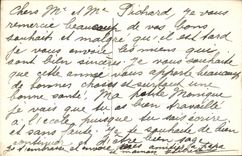 Chers Mr et Mme Pichard Je vous
remercie beaucoup de vos bons
souhaits et malgré qu'il est tard
je vous envoie les miens qui
sont bien sincères. Je vous souhaite
que cette année vous apporte beaucoup
de bonnes choses et surtout une
bonne santé. Ma petite Monique
Je vois que tu as bien travaillé
à l'école puisque tu sais écrire
et sans faute. Je te souhaite de bien
continuer et d'être bien
Je t'embrasse